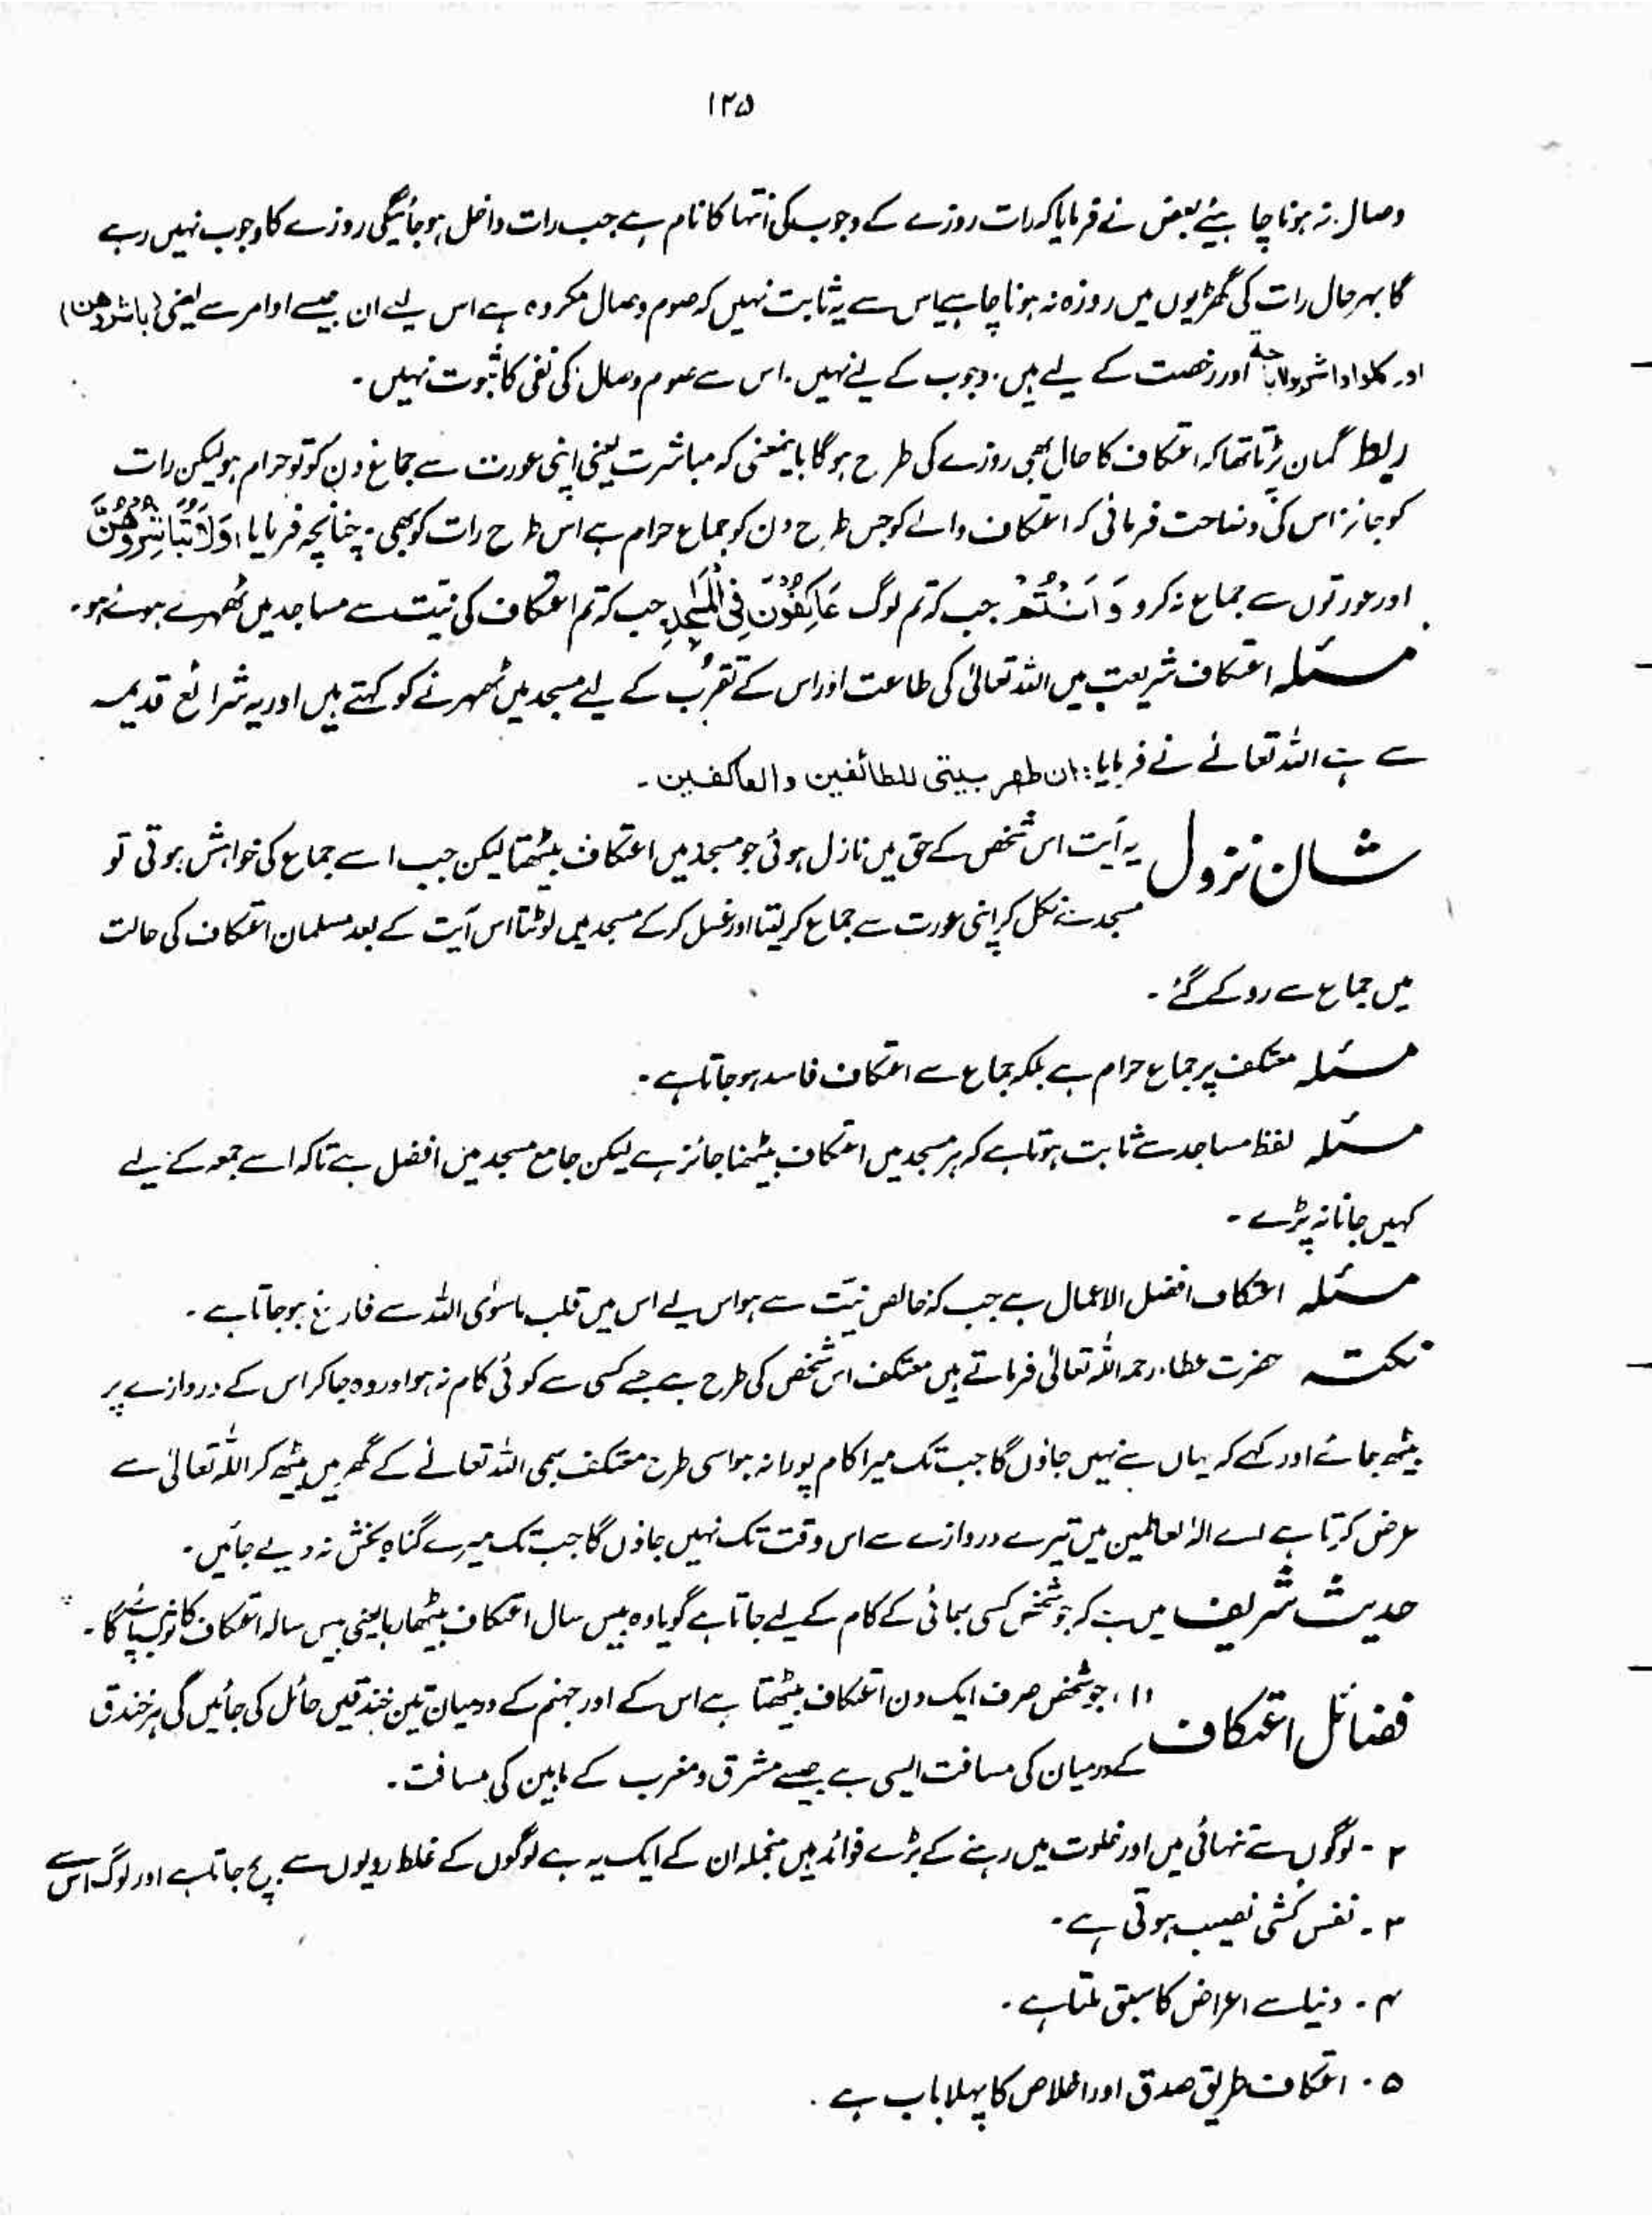 ۱۲۵
وصال نہ ہونا چاہیئے بعض نے فرمایا کہ رات روزے کے وجوب کی انتہا کا نام ہے جب رات داخل ہو جائیگی روزے کا وجوب نہیں رہے
گا بہر حال رات کی گھڑیوں میں روزہ نہ ہونا چاہیے اس سے یہ ثابت نہیں کہ صوم وصال مکروہ ہے اس لیے ان جیسے اوامر سے یعنی (باشروھن)
اور کلوا واشربوا اباحۃ اور رخصت کے لیے ہیں۔ وجوب کے لیے نہیں۔ اس سے صوم وصال کی نفی کا ثبوت نہیں۔
ربط گمان پڑتا تھا کہ اعتکاف کا حال بھی روزے کی طرح ہوگا بایمعنی کہ مباشرت یعنی اپنی عورت سے جماع دن کو تو حرام ہو لیکن رات
کو جائز اس کی وضاحت فرمائی کہ اعتکاف والے کو جس طرح دن کو جماع حرام ہے اس طرح رات کو بھی۔ چنانچہ فرمایا، وَلَا تُبَاشِرُوْھُنَّ
اور عورتوں سے جماع نہ کرو وَ اَنْتُمْ جب کہ تم لوگ عَاکِفُوْنَ فِی الْمَسٰجِدِ جب کہ تم اعتکاف کی نیت سے مساجد میں ٹھہرے ہوئے ہو۔
مسئلہ اعتکاف شریعت میں اللہ تعالیٰ کی طاعت اور اس کے تقرُب کے لیے مسجد میں ٹھہرنے کو کہتے ہیں اور یہ شرائع قدیمہ
سے ہے اللہ تعالےٰ نے فرمایا: ان طھر بیتی للطائفین والعاکفین۔
شان نزول یہ آیت اس شخص کے حق میں نازل ہوئی جو مسجد میں اعتکاف بیٹھتا لیکن جب اسے جماع کی خواہش ہوتی تو
مسجد سے نکل کر اپنی عورت سے جماع کر لیتا اور غسل کر کے مسجد میں لوٹتا اس آیت کے بعد مسلمان اعتکاف کی حالت
میں جماع سے روکے گئے۔
مسئلہ معتکف پر جماع حرام ہے بلکہ جماع سے اعتکاف فاسد ہو جاتا ہے۔
مسئلہ لفظ مساجد سے ثابت ہوتا ہے کہ ہر مسجد میں اعتکاف بیٹھنا جائز ہے لیکن جامع مسجد میں افضل ہے تاکہ اسے جمعہ کے لیے
کہیں جانا نہ پڑے۔
مسئلہ اعتکاف افضل الاعمال ہے جب کہ خالص نیّت سے ہو اس لیے اس میں قلب ماسوٰی اللہ سے فارغ ہو جاتا ہے۔
نکتہ حضرت عطاء رحمہ اللہ تعالیٰ فرماتے ہیں معتکف اس شخص کی طرح ہے جسے کسی سے کوئی کام نہ ہو اور وہ جا کر اس کے دروازے پر
بیٹھ جائے اور کہے کہ یہاں سے نہیں جاؤں گا جب تک میرا کام پورا نہ ہو اسی طرح معتکف بھی اللہ تعالےٰ کے گھر میں بیٹھ کر اللہ تعالیٰ سے
عرض کرتا ہے اے الٰہ العالمین میں تیرے دروازے سے اس وقت تک نہیں جاؤں گا جب تک میرے گناہ بخش نہ دیے جائیں۔
حدیث شریف میں ہے کہ جو شخص کسی بھائی کے کام کے لیے جاتا ہے گویا وہ بیس سال اعتکاف بیٹھا رہا یعنی بیس سالہ اعتکاف کا ثواب پائے گا۔
فضائل اعتکاف (۱) جو شخص صرف ایک دن اعتکاف بیٹھتا ہے اس کے اور جہنم کے درمیان تین خندقیں حائل کی جائیں گی ہر خندق
کے درمیان کی مسافت ایسی ہے جیسے مشرق و مغرب کے مابین کی مسافت۔
۲- لوگوں سے تنہائی میں اور خلوت میں رہنے کے بڑے فوائد ہیں منجملہ ان کے ایک یہ ہے لوگوں کے غلط رویوں سے بچ جاتا ہے اور لوگ اس سے
۳۔ نفس کُشی نصیب ہوتی ہے۔
۴۔ دنیا سے اعراض کا سبق ملتا ہے۔
۵۔ اعتکاف طریق صدق اور اخلاص کا پہلا باب ہے۔